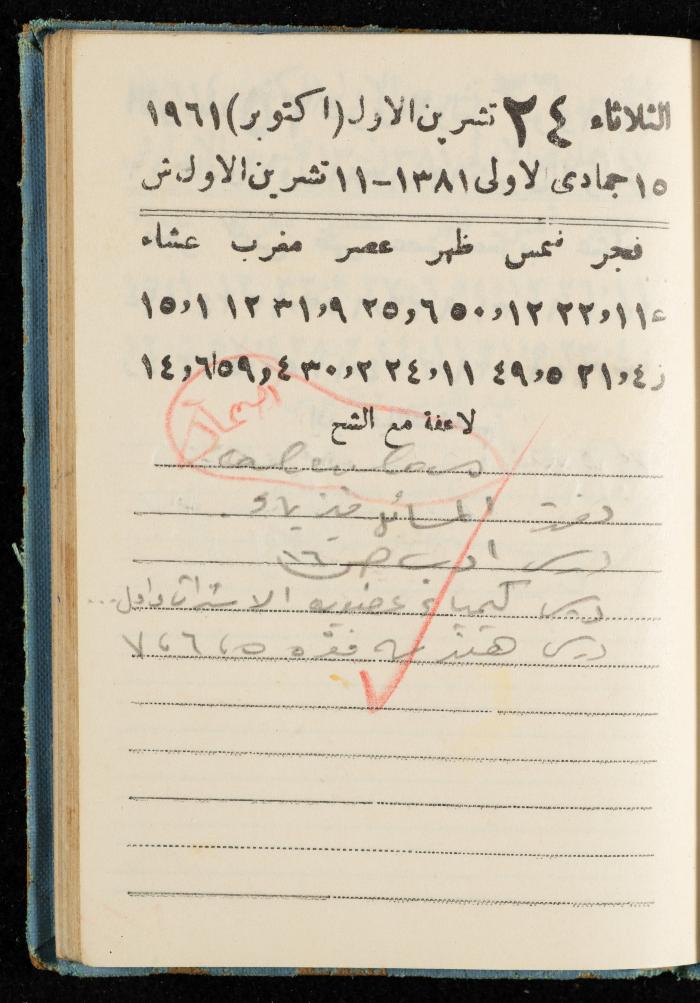 الثلاثاء ٢٤ تشرين الاول (اكتوبر) ١٩٦١
١٥ جمادى الاولى ١٣٨١ - ١١ تشرين الاول ش
فجر شمس ظهر عصر مغرب عشاء
ع ١١,٢٢ ١٢,٥٠ ٦,٢٥ ٩,٣١ ١٢ ١,١٥
ز ٤,٢١ ٥,٤٩ ١١,٢٤ ٢,٣٠ ٤,٥٩ ٦,١٤
لا عفة مع الشح
المسائل فيزياء
درس ادب ص ١٦
درس كيمياء عضوية
درس هندسة فقرة ٥، ٦، ٧